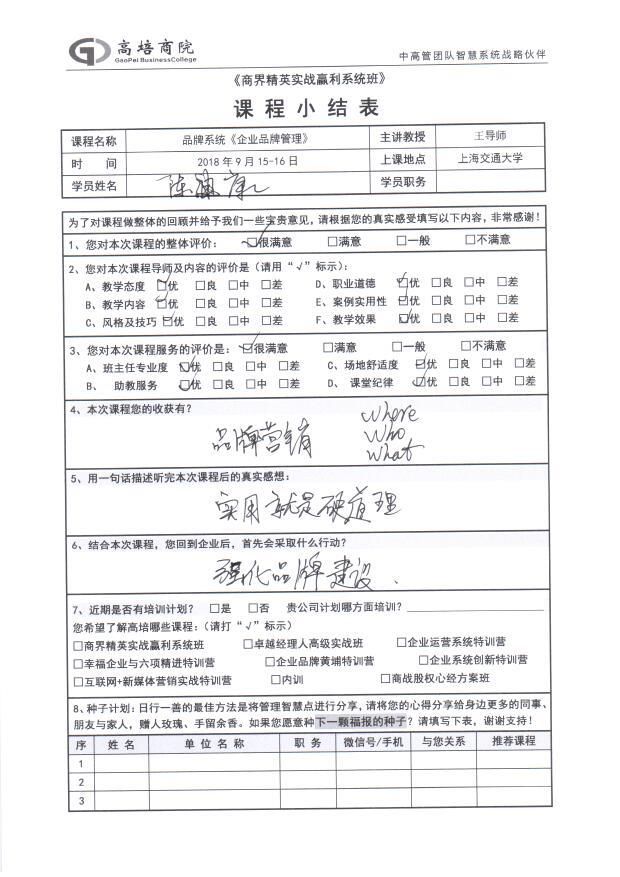 高培商院
GaoPei BusinessCollege
中高管团队智慧系统战略伙伴
《商界精英实战赢利系统班》
课程小结表
课程名称 品牌系统《企业品牌管理》 主讲教授 王导师
时 间 2018年9月15-16日 上课地点 上海交通大学
学员姓名 陈 学员职务
为了对课程做整体的回顾并给予我们一些宝贵意见,请根据您的真实感受填写以下内容,非常感谢!
1、您对本次课程的整体评价: ☑很满意 □满意 □一般 □不满意
2、您对本次课程导师及内容的评价是(请用“√”标示):
A、教学态度 ☑优 □良 □中 □差 D、职业道德 ☑优 □良 □中 □差
B、教学内容 ☑优 □良 □中 □差 E、案例实用性 ☑优 □良 □中 □差
C、风格及技巧 ☑优 □良 □中 □差 F、教学效果 ☑优 □良 □中 □差
3、您对本次课程服务的评价是: ☑很满意 □满意 □一般 □不满意
A、班主任专业度 ☑优 □良 □中 □差 C、场地舒适度 ☑优 □良 □中 □差
B、 助教服务 ☑优 □良 □中 □差 D、 课堂纪律 ☑优 □良 □中 □差
4、本次课程您的收获有?
where
品牌营销 who
what
5、用一句话描述听完本次课程后的真实感想:
实用就是硬道理
6、结合本次课程,您回到企业后,首先会采取什么行动?
强化品牌建设、
7、近期是否有培训计划? □是 □否 贵公司计划哪方面培训?
您希望了解高培哪些课程:(请打“√”标示)
□商界精英实战赢利系统班 □卓越经理人高级实战班 □企业运营系统特训营
□幸福企业与六项精进特训营 □企业品牌黄埔特训营 □企业系统创新特训营
□互联网+新媒体营销实战特训营 □内训 □商战股权心经方案班
8、种子计划:日行一善的最佳方法是将管理智慧点进行分享,请将您的心得分享给身边更多的同事、
朋友与家人,赠人玫瑰、手留余香。如果您愿意种下一颗福报的种子?请填写下表,谢谢支持!
序 姓 名 单 位 名 称 职 务 微信号/手机 与您关系 推荐课程
1
2
3